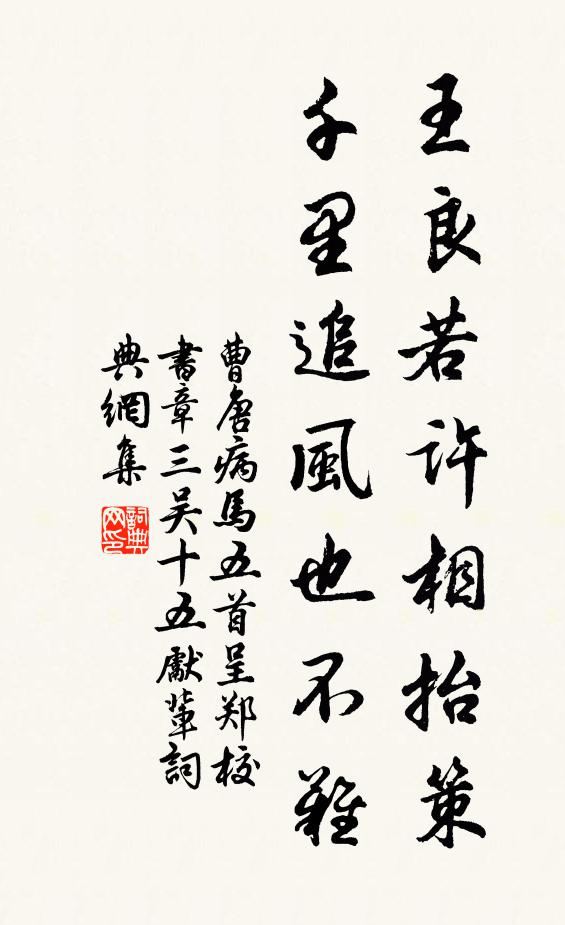 王良若許相抬策
千里追風也不難
曹唐病馬五首呈郑校
書章三吴十五獻輩詞
典網集
詞典网印